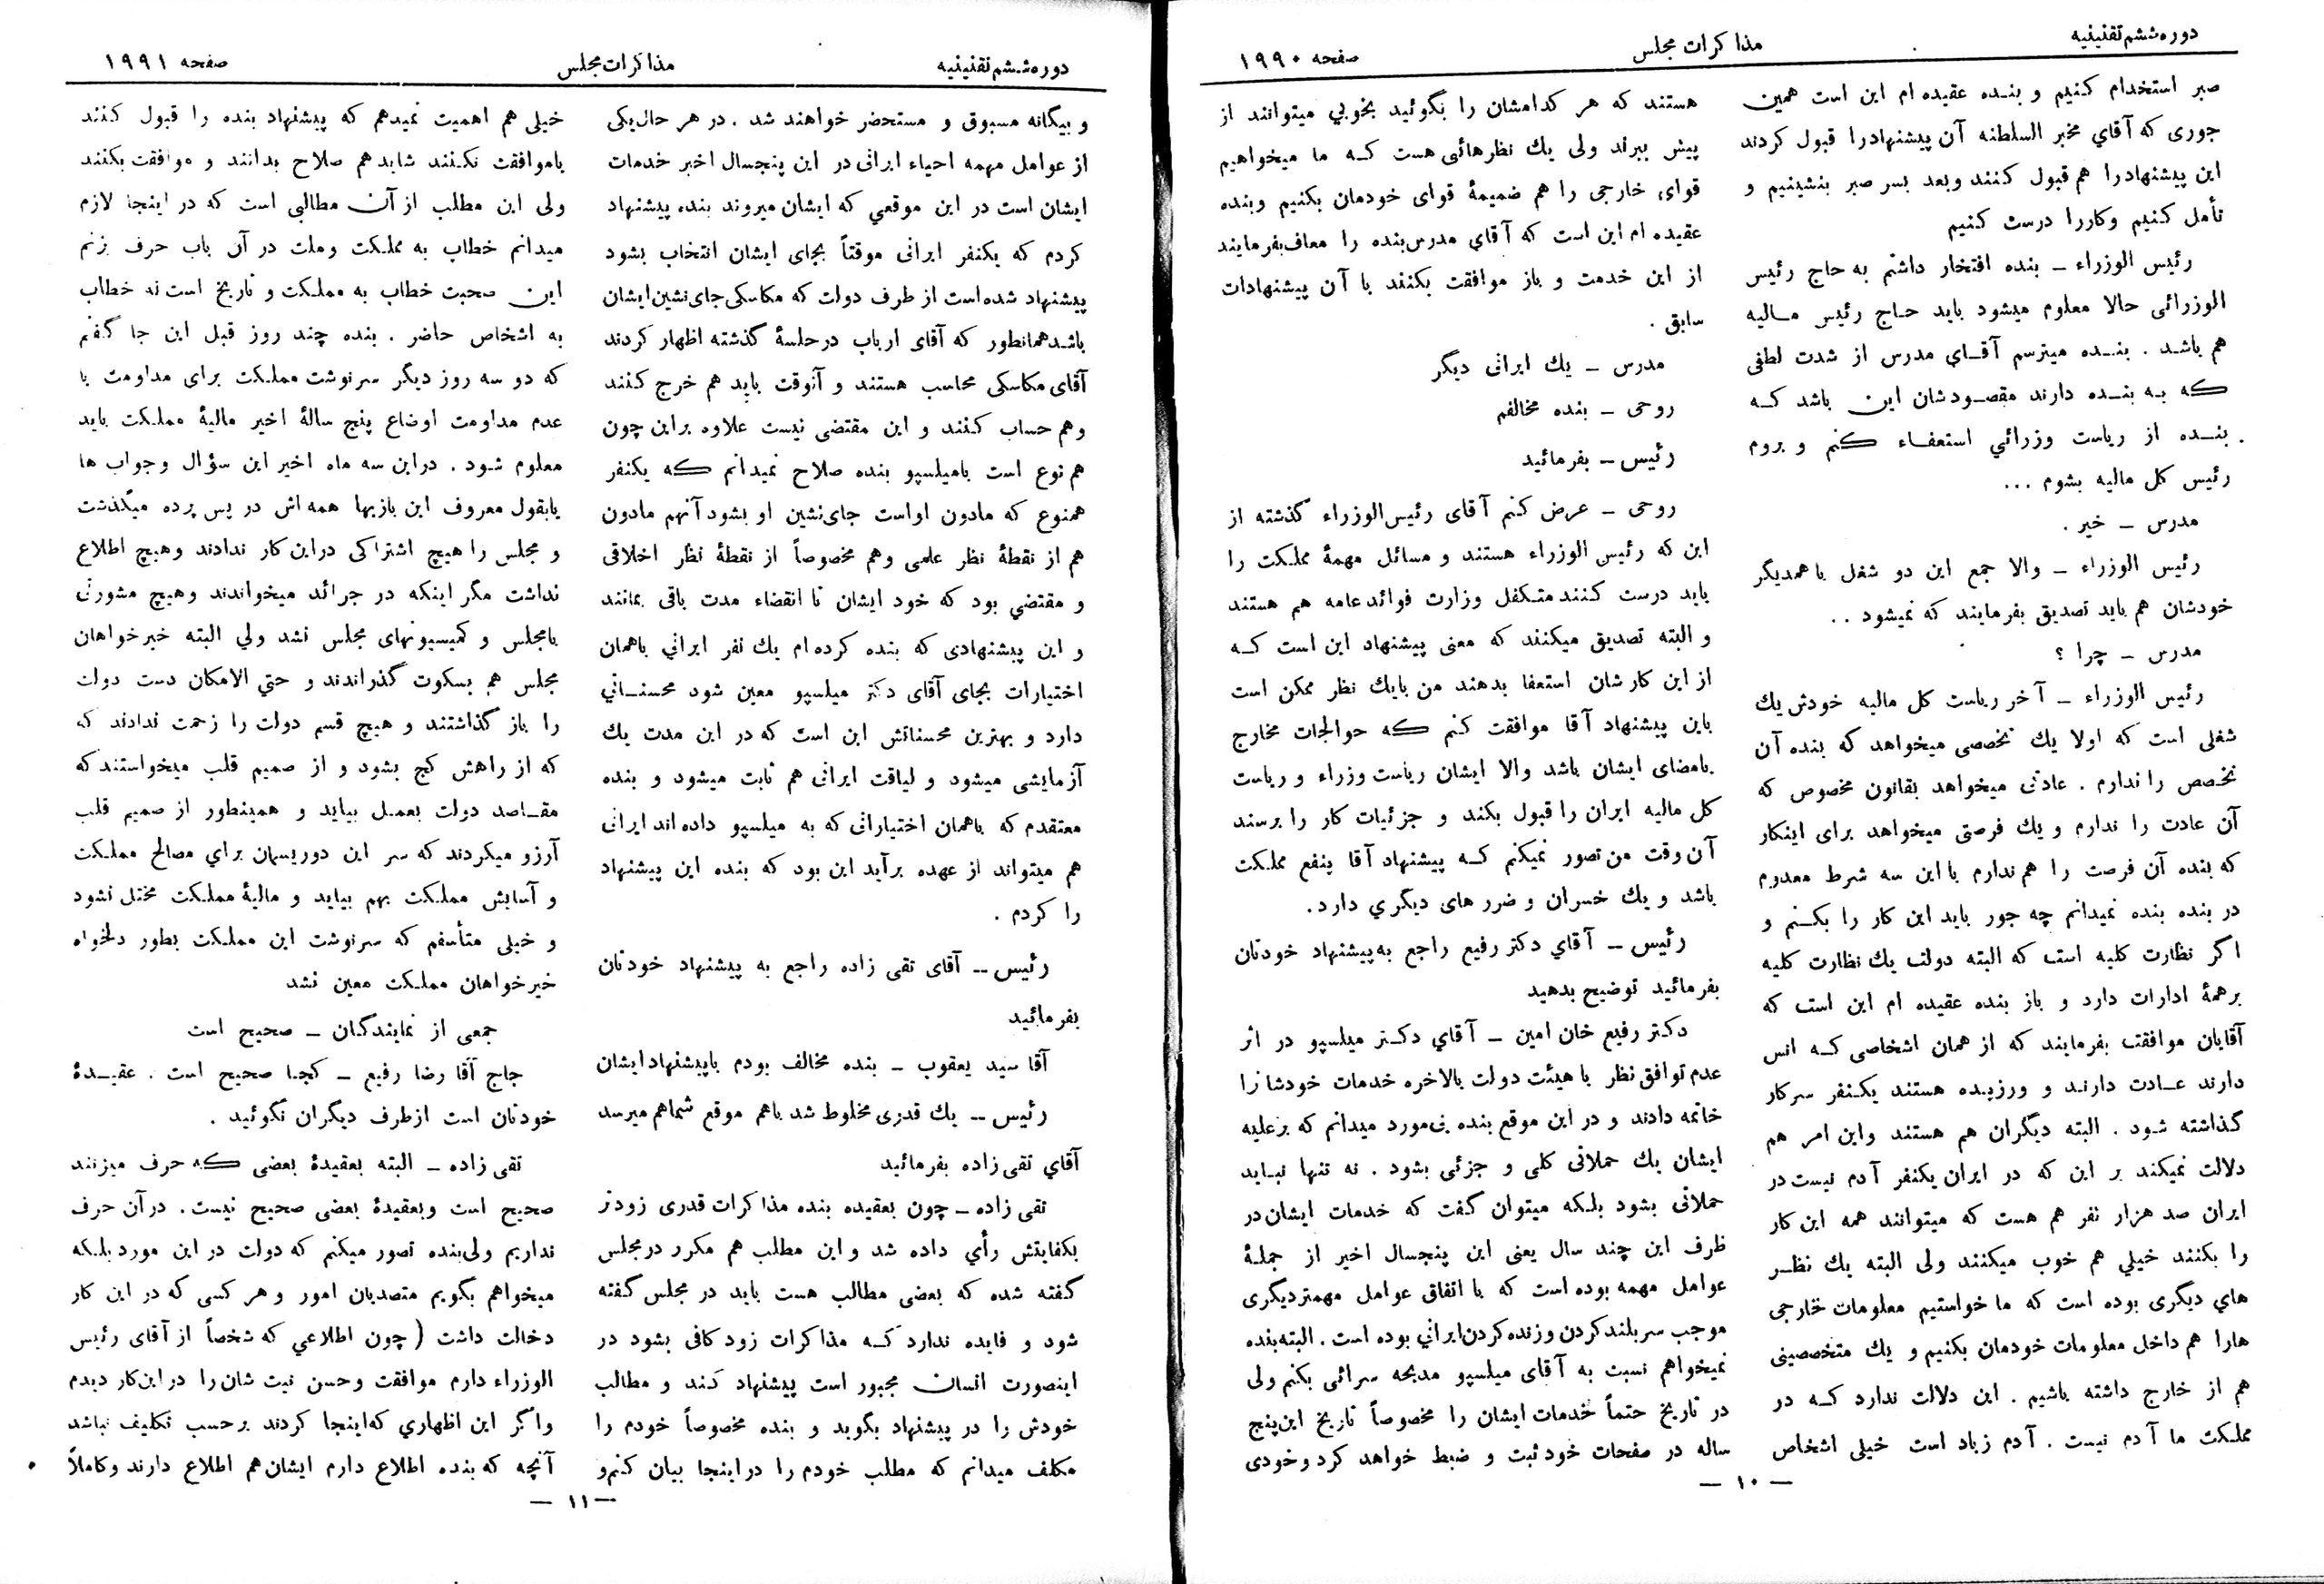 دوره ششم تقنینیه
مذاکرات مجلس
صفحه ۱۹۹۰
صبر استخدام کنیم و بنده عقیده ام این است همین
جوری که آقای مخبر السلطنه آن پیشنهاد را قبول کردند
این پیشنهاد را هم قبول کنند و بعد بسر صبر بنشینیم و
تأمل کنیم و کار را درست کنیم
رئیس الوزراء ـ بنده افتخار داشتم به حاج رئیس
الوزرائی حالا معلوم میشود باید حاج رئیس مالیه
هم باشد . بنده میترسم آقای مدرس از شدت لطفی
که به بنده دارند مقصودشان این باشد که
بنده از ریاست وزرائی استعفاء کنم و بروم
رئیس کل مالیه بشوم ...
مدرس ـ خیر .
رئیس الوزراء ـ والا جمع این دو شغل با همدیگر
خودشان هم باید تصدیق بفرمایند که نمیشود . .
مدرس ـ چرا ؟
رئیس الوزراء ـ آخر ریاست کل مالیه خودش یك
شغلی است که اولا یك تخصصی میخواهد که بنده آن
تخصص را ندارم . عادتی میخواهد بقانون مخصوص که
آن عادت را ندارم و یك فرصتی میخواهد برای اینکار
که بنده آن فرصت را هم ندارم با این سه شرط معدوم
در بنده بنده نمیدانم چه جور باید این کار را بکنم و
اگر نظارت کلیه است که البته دولت یك نظارت کلیه
بر همهٔ ادارات دارد و باز بنده عقیده ام این است که
آقایان موافقت بفرمایند که از همان اشخاصی که انس
دارند عادت دارند و ورزیده هستند یکنفر سر کار
گذاشته شود . البته دیگران هم هستند و این امر هم
دلالت نمیکند بر این که در ایران یکنفر آدم نیست در
ایران صد هزار نفر هم هست که میتوانند همه این کار
را بکنند خیلی هم خوب میکنند ولی البته یك نظر
های دیگری بوده است که ما خواستیم معلومات خارجی
هارا هم داخل معلومات خودمان بکنیم و یك متخصصینی
هم از خارج داشته باشیم . این دلالت ندارد که در
مملکت ما آدم نیست . آدم زیاد است خیلی اشخاص
هستند که هر کدامشان را بگوئید بخوبی میتوانند از
پیش ببرند ولی یك نظرهائی هست که ما میخواهیم
قوای خارجی را هم ضمیمهٔ قوای خودمان بکنیم و بنده
عقیده ام این است که آقای مدرس بنده را معاف بفرمایند
از این خدمت و باز موافقت بکنند با آن پیشنهادات
سابق .
مدرس ـ یك ایرانی دیگر
روحی ـ بنده مخالفم
رئیس ـ بفرمائید
روحی ـ عرض کنم آقای رئیس الوزراء گذشته از
این که رئیس الوزراء هستند و مسائل مهمهٔ مملکت را
باید درست کنند متکفل وزارت فوائد عامه هم هستند
و البته تصدیق میکنند که معنی پیشنهاد این است که
از این کارشان استعفا بدهند من بایك نظر ممکن است
باین پیشنهاد آقا موافقت کنم که حوالجات مخارج
بامضای ایشان باشد والا ایشان ریاست وزراء و ریاست
کل مالیه ایران را قبول بکند و جزئیات کار را برسند
آن وقت من تصور نمیکنم که پیشنهاد آقا بنفع مملکت
باشد و یك خسران و ضرر های دیگری دارد .
رئیس ـ آقای دکتر رفیع راجع به پیشنهاد خودتان
بفرمائید توضیح بدهید
دکتر رفیع خان امین ـ آقای دکتر میلسپو در اثر
عدم توافق نظر با هیئت دولت بالاخره خدمات خودشانرا
خاتمه دادند و در این موقع بنده بی مورد میدانم که بر علیه
ایشان یك حملاتی کلی و جزئی بشود . نه تنها نباید
حملاتی بشود بلکه میتوان گفت که خدمات ایشان در
ظرف این چند سال یعنی این پنجسال اخیر از جملهٔ
عوامل مهمه بوده است که با اتفاق عوامل مهمتر دیگری
موجب سر بلند کردن و زنده کردن ایرانی بوده است . البته بنده
نمیخواهم نسبت به آقای میلسپو مدیحه سرائی بکنم ولی
در تاریخ حتماً خدمات ایشان را مخصوصاً تاریخ این پنج
ساله در صفحات خود ثبت و ضبط خواهد کرد و خودی
— ۱۰ —
دوره ششم تقنینیه
مذاکرات مجلس
صفحه ۱۹۹۱
و بیگانه مسبوق و مستحضر خواهند شد . در هر حال یکی
از عوامل مهمه احیاء ایرانی در این پنجسال اخیر خدمات
ایشان است در این موقعی که ایشان میروند بنده پیشنهاد
کردم که یکنفر ایرانی موقتاً بجای ایشان انتخاب بشود
پیشنهاد شده است از طرف دولت که مکاسکی جای نشین ایشان
باشد همانطور که آقای ارباب در جلسهٔ گذشته اظهار کردند
آقای مکاسکی محاسب هستند و آنوقت باید هم خرج کنند
وهم حساب کنند و این مقتضی نیست علاوه بر این چون
هم نوع است بامیلسپو بنده صلاح نمیدانم که یکنفر
همنوع که مادون اواست جای نشین او بشود آنهم مادون
هم از نقطهٔ نظر علمی وهم مخصوصاً از نقطهٔ نظر اخلاقی
و مقتضی بود که خود ایشان تا انقضاء مدت باقی بمانند
و این پیشنهادی که بنده کرده ام یك نفر ایرانی باهمان
اختیارات بجای آقای دکتر میلسپو معین شود محسناتی
دارد و بهترین محسناتش این است که در این مدت یك
آزمایشی میشود و لیاقت ایرانی هم ثابت میشود و بنده
معتقدم که باهمان اختیاراتی که به میلسپو داده اند ایرانی
هم میتواند از عهده برآید این بود که بنده این پیشنهاد
را کردم .
رئیس ـ آقای تقی زاده راجع به پیشنهاد خودتان
بفرمائید
آقا سید یعقوب ـ بنده مخالف بودم باپیشنهاد ایشان
رئیس ـ یك قدری مخلوط شد باهم موقع شماهم میرسد
آقای تقی زاده بفرمائید
تقی زاده ـ چون بعقیده بنده مذاکرات قدری زودتر
بکفایتش رأی داده شد و این مطلب هم مکرر در مجلس
گفته شده که بعضی مطالب هست باید در مجلس گفته
شود و فایده ندارد که مذاکرات زود کافی بشود در
اینصورت انسان مجبور است پیشنهاد کند و مطالب
خودش را در پیشنهاد بگوید و بنده مخصوصاً خودم را
مکلف میدانم که مطلب خودم را در اینجا بیان کنم و
خیلی هم اهمیت نمیدهم که پیشنهاد بنده را قبول کنند
یاموافقت نکنند شاید هم صلاح بدانند و موافقت بکنند
ولی این مطلب از آن مطالبی است که در اینجا لازم
میدانم خطاب به مملکت و ملت در آن باب حرف بزنم
این صحبت خطاب به مملکت و تاریخ است نه خطاب
به اشخاص حاضر . بنده چند روز قبل این جا گفتم
که دو سه روز دیگر سرنوشت مملکت برای مداومت یا
عدم مداومت اوضاع پنج سالهٔ اخیر مالیهٔ مملکت باید
معلوم شود . در این سه ماه اخیر این سؤال و جواب ها
یابقول معروف این بازیها همه اش در پس پرده میگذشت
و مجلس را هیچ اشتراکی در این کار ندادند وهیچ اطلاع
نداشت مگر اینکه در جرائد میخواندند وهیچ مشورتی
بامجلس و کمیسیونهای مجلس نشد ولی البته خیرخواهان
مجلس هم بسکوت گذراندند و حتی الامکان دست دولت
را باز گذاشتند و هیچ قسم دولت را زحمت ندادند که
که از راهش کج بشود و از صمیم قلب میخواستند که
مقاصد دولت بعمل بیاید و همینطور از صمیم قلب
آرزو میکردند که سر این دوریسمان برای مصالح مملکت
و آسایش مملکت بهم بیاید و مالیهٔ مملکت مختل نشود
و خیلی متأسفم که سرنوشت این مملکت بطور دلخواه
خیرخواهان مملکت معین نشد
جمعی از نمایندگان ـ صحیح است
حاج آقا رضا رفیع ـ کجا صحیح است . عقیدهٔ
خودتان است از طرف دیگران نگوئید .
تقی زاده ـ البته بعقیدهٔ بعضی که حرف میزنند
صحیح است و بعقیدهٔ بعضی صحیح نیست . در آن حرف
نداریم ولی بنده تصور میکنم که دولت در این مورد بلکه
میخواهم بگویم متصدیان امور و هر کسی که در این کار
دخالت داشت ( چون اطلاعی که شخصاً از آقای رئیس
الوزراء دارم موافقت و حسن نیت شان را در این کار دیدم
واگر این اظهاری که اینجا کردند بر حسب تکلیف نباشد
آنچه که بنده اطلاع دارم ایشان هم اطلاع دارند و کاملاً
— ۱۱ —